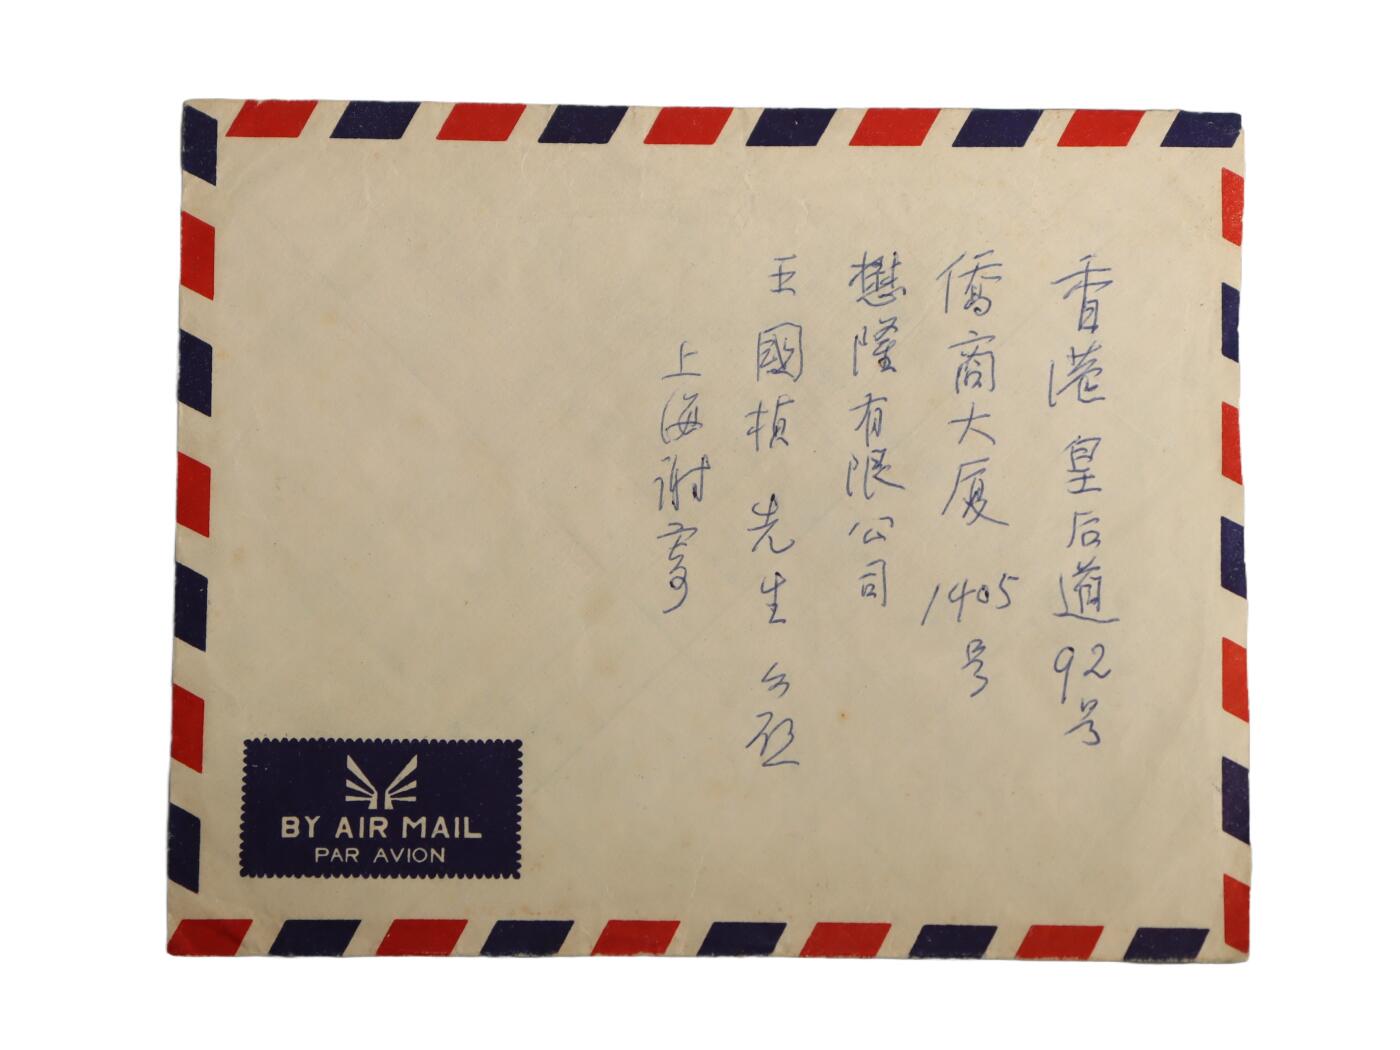 香港皇后道92号
僑商大厦1405号
懋隆有限公司
王國楨先生公啟
上海謝寄
BY AIR MAIL
PAR AVION